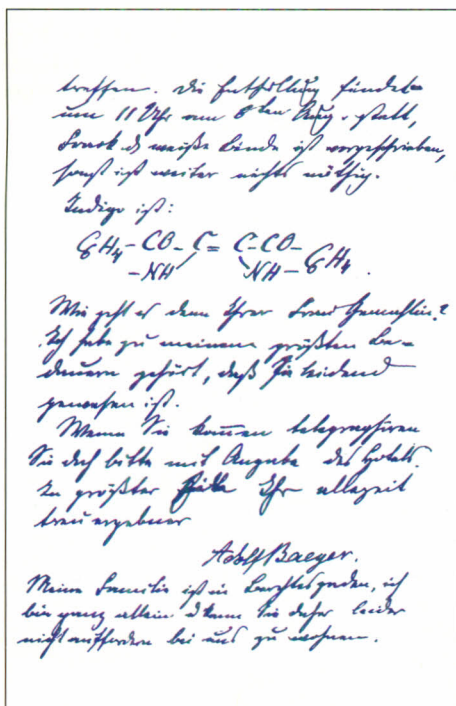 treffen. Die Enthüllung findet
um 11 Uhr am 6ten Aug. statt,
Frack & weiße Binde ist vorgeschrieben,
sonst ist weiter nichts nöthig.
Indigo ist:
C6H4-CO-C=C-CO-C6H4.
-NH NH-
Wie geht es denn Ihrer Frau Gemahlin?
Ich habe zu meinem größten Be-
dauern gehört, daß Sie leidend
gewesen ist.
Wenn Sie kommen telegraphiren
Sie doch bitte mit Angabe des Hotels.
In größter Eile Ihr allezeit
treu ergebner
Adolf Baeyer.
Meine Familie ist in Berchtesgaden, ich
bin ganz allein & kann Sie daher leider
nicht auffordern bei uns zu wohnen.